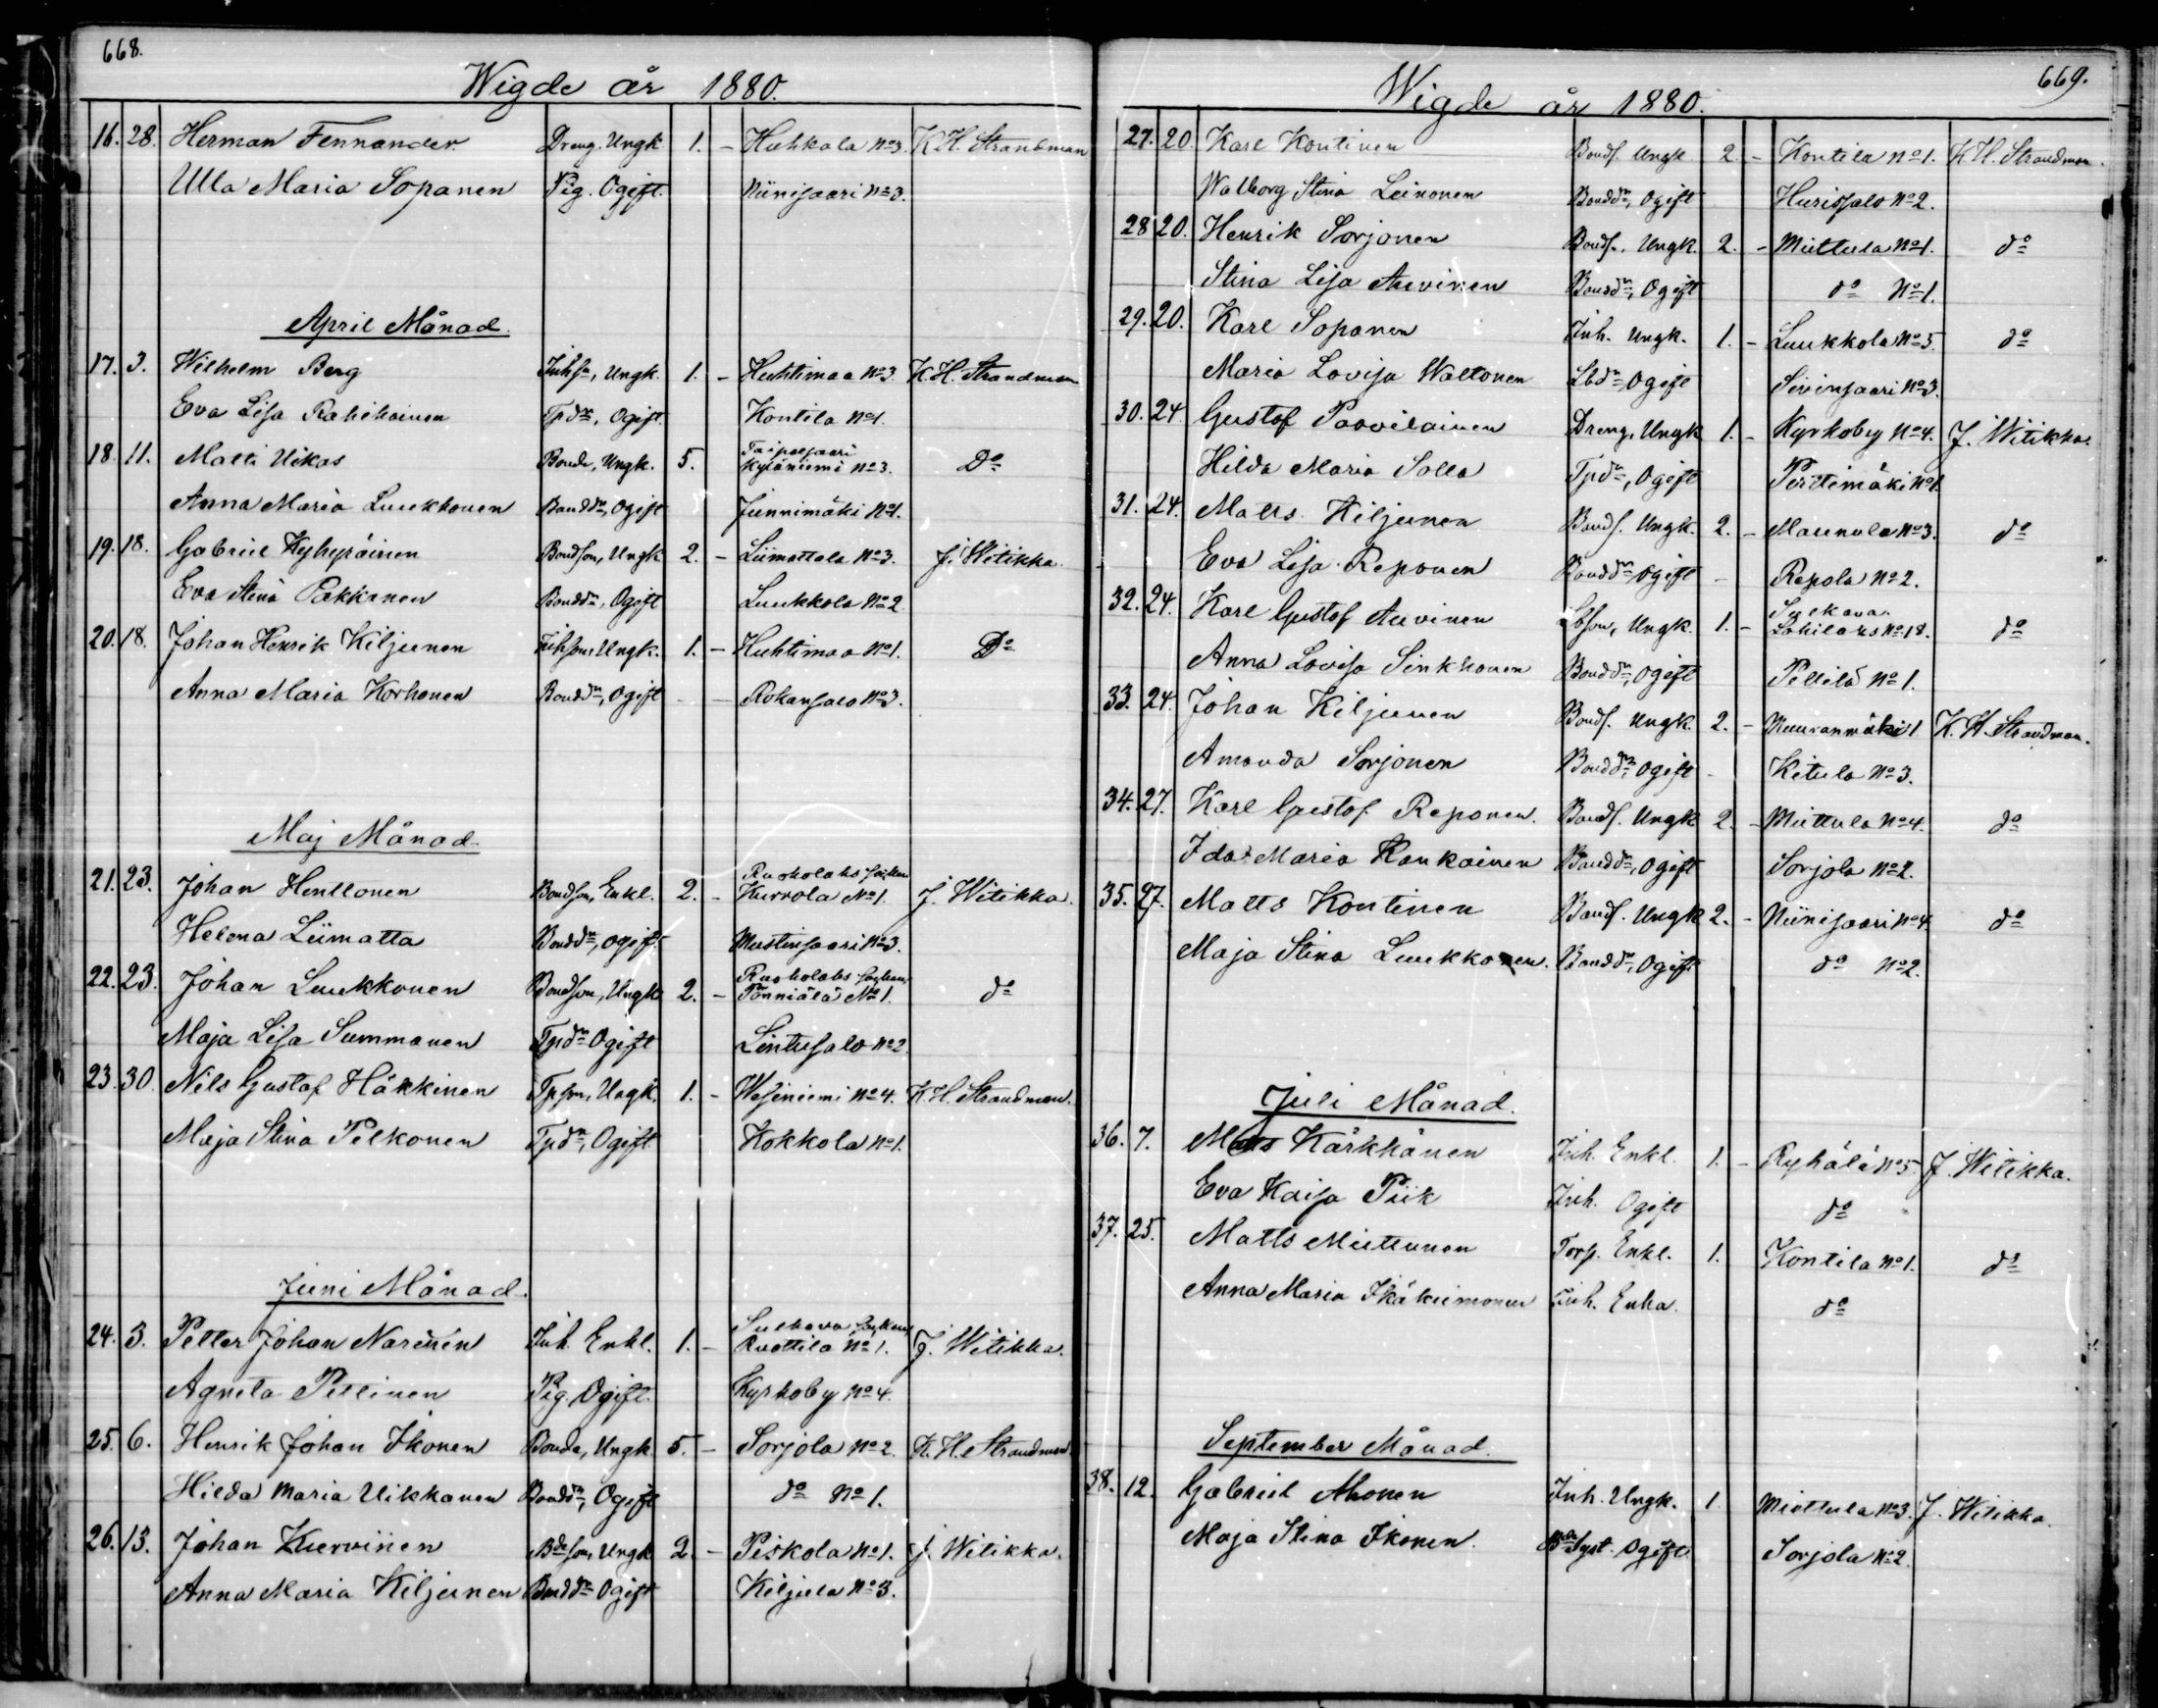 668.
Wigde år 1880.
16. 28. Herman Fennander Dreng. Ungk. 1. - Huhkala No 3. K.H. Strandman
Ulla Maria Sopanen Pig. Ogift. Niinisaari No 3.
April Månad.
17. 3. Wilhelm Berg Inhsn, Ungk. 1. - Huhtimaa No 3. K.H. Strandman
Eva Lisa Rahikainen Tpdr, Ogift. Kontila No 1.
18. 11. Matti Uikas Bonde, Ungk. 5. Taipalsaari Kyläniemi No 3. Do
Anna Maria Luukkonen Bonddr, Ogift Junnimäki No 1.
19. 18. Gabriel Kyhyräinen Bondson, Ungk 2. - Liimattala No 3. J. Witikka.
Eva Stina Pakkanen Bonddr, Ogift Luukkola No 2
20. 18. Johan Henrik Kiljunen Inhson Ungk. 1. - Huhtimaa No 1. Do
Anna Maria Korhonen Bonddr, Ogift Rokansalo No 3.
Maj Månad.
21. 23. Johan Henttonen Bondson, Enkl. 2. - Ruokolaks socken Kurrola No 1. J. Witikka.
Helena Liimatta Bonddr, ogift. Mustinsaari No 3.
22. 23. Johan Luukkonen Bondson, Ungk 2. - Ruokolaks socken, Pönniälä No 1. do
Maja Lisa Summanen Tpdr Ogift Lintusalo No 2
23. 30. Nils Gustaf Häkkinen Tpson, Ungk. 1. - Wesiniemi No 4. K.H. Strandman.
Maja Stina Pelkonen Tpdr, Ogift Kokkola No 1.
Juni Månad.
24. 3. Petter Johan Narinen Inh. Enkl. 1. - Sulkava socken Ruottila No 1. J. Witikka.
Agneta Pellinen Pig. Ogift. Kyrkoby No 4.
25. 6. Henrik Johan Ikonen Bonde, Ungk 5. - Sorjola No 2. K.H. Strandman
Hilda Maria Uikkanen Bonddr, Ogift do No 1.
26. 13. Johan Kurvinen Bdeson, Ungk 2. - Piskola No 1. J. Witikka.
Anna Maria Kiljunen Bonddr Ogift Kiljula No 3.
669.
Wigde år 1880.
27. 20. Karl Kontinen Bonds. Ungk. 2. - Kontila No 1. K.H. Strandman.
Walborg Stina Leinonen Bonddr, Ogift Hurissalo No 2.
28 20. Henrik Sorjonen Bonds. Ungk. 2. - Miettula No 1. do
Stina Lisa Auvinen Bonddr, Ogift do No 1.
29. 20. Karl Sopanen Inh. Ungk. 1. - Luukkola No 5. do
Maria Lovisa Waltonen Lbdr, Ogift Sivinsaari No 3.
30. 24 Gustof Paavilainen Dreng, Ungk 1. - Kyrkoby No 4. J. Witikka.
Hilda Maria Solla Tpdr, Ogift Perttimäki No 1
31. 24. Matts Kiljunen Bonds. Ungk. 2. - Maunola No 3. do
Eva Lisa Reponen Bonddr ogift - Repola No 2.
32. 24. Karl Gustof Auvinen Lbson, Ungk. 1. - Sulkava Lohilaks No 18. do
Anna Lovisa Sinkkonen Bonddr, Ogift Pellilä No 1.
33. 24. Johan Kiljunen Bonds. Ungk. 2. - Muuranmäki 1 K.H. Strandman.
Amanda Sorjonen Bonddr, ogift - Kitula No 3.
34. 27. Karl Gustof Reponen. Bonds. Ungk 2. - Miettula No 4. do
Ida Maria Kankainen Bonddr, Ogift Sorjola No 2.
35. 27. Matts Kontinen Bonds. Ungk 2. - Niinisaari No 4 do
Maja Stina Luukkonen. Bonddr, Ogift do No 2.
Juli Månad.
36. 7. Matts Kärkkänen Inh. Enkl. 1. - Ryhälä No 5 J. Witikka.
Eva Kaisa Piik Inh. Ogift do "
37. 25. Matts Miettunen Torp. Enkl. 1. Kontila No 1. do
Anna Maria Ikäheimonen Inh. Enka. do
September Månad.
38. 12. Gabriel Ahonen Inh. Ungk. 1. Miettula No 3. J. Witikka.
Maja Stina Ikonen. Bdesyst. Ogift Sorjola No 2